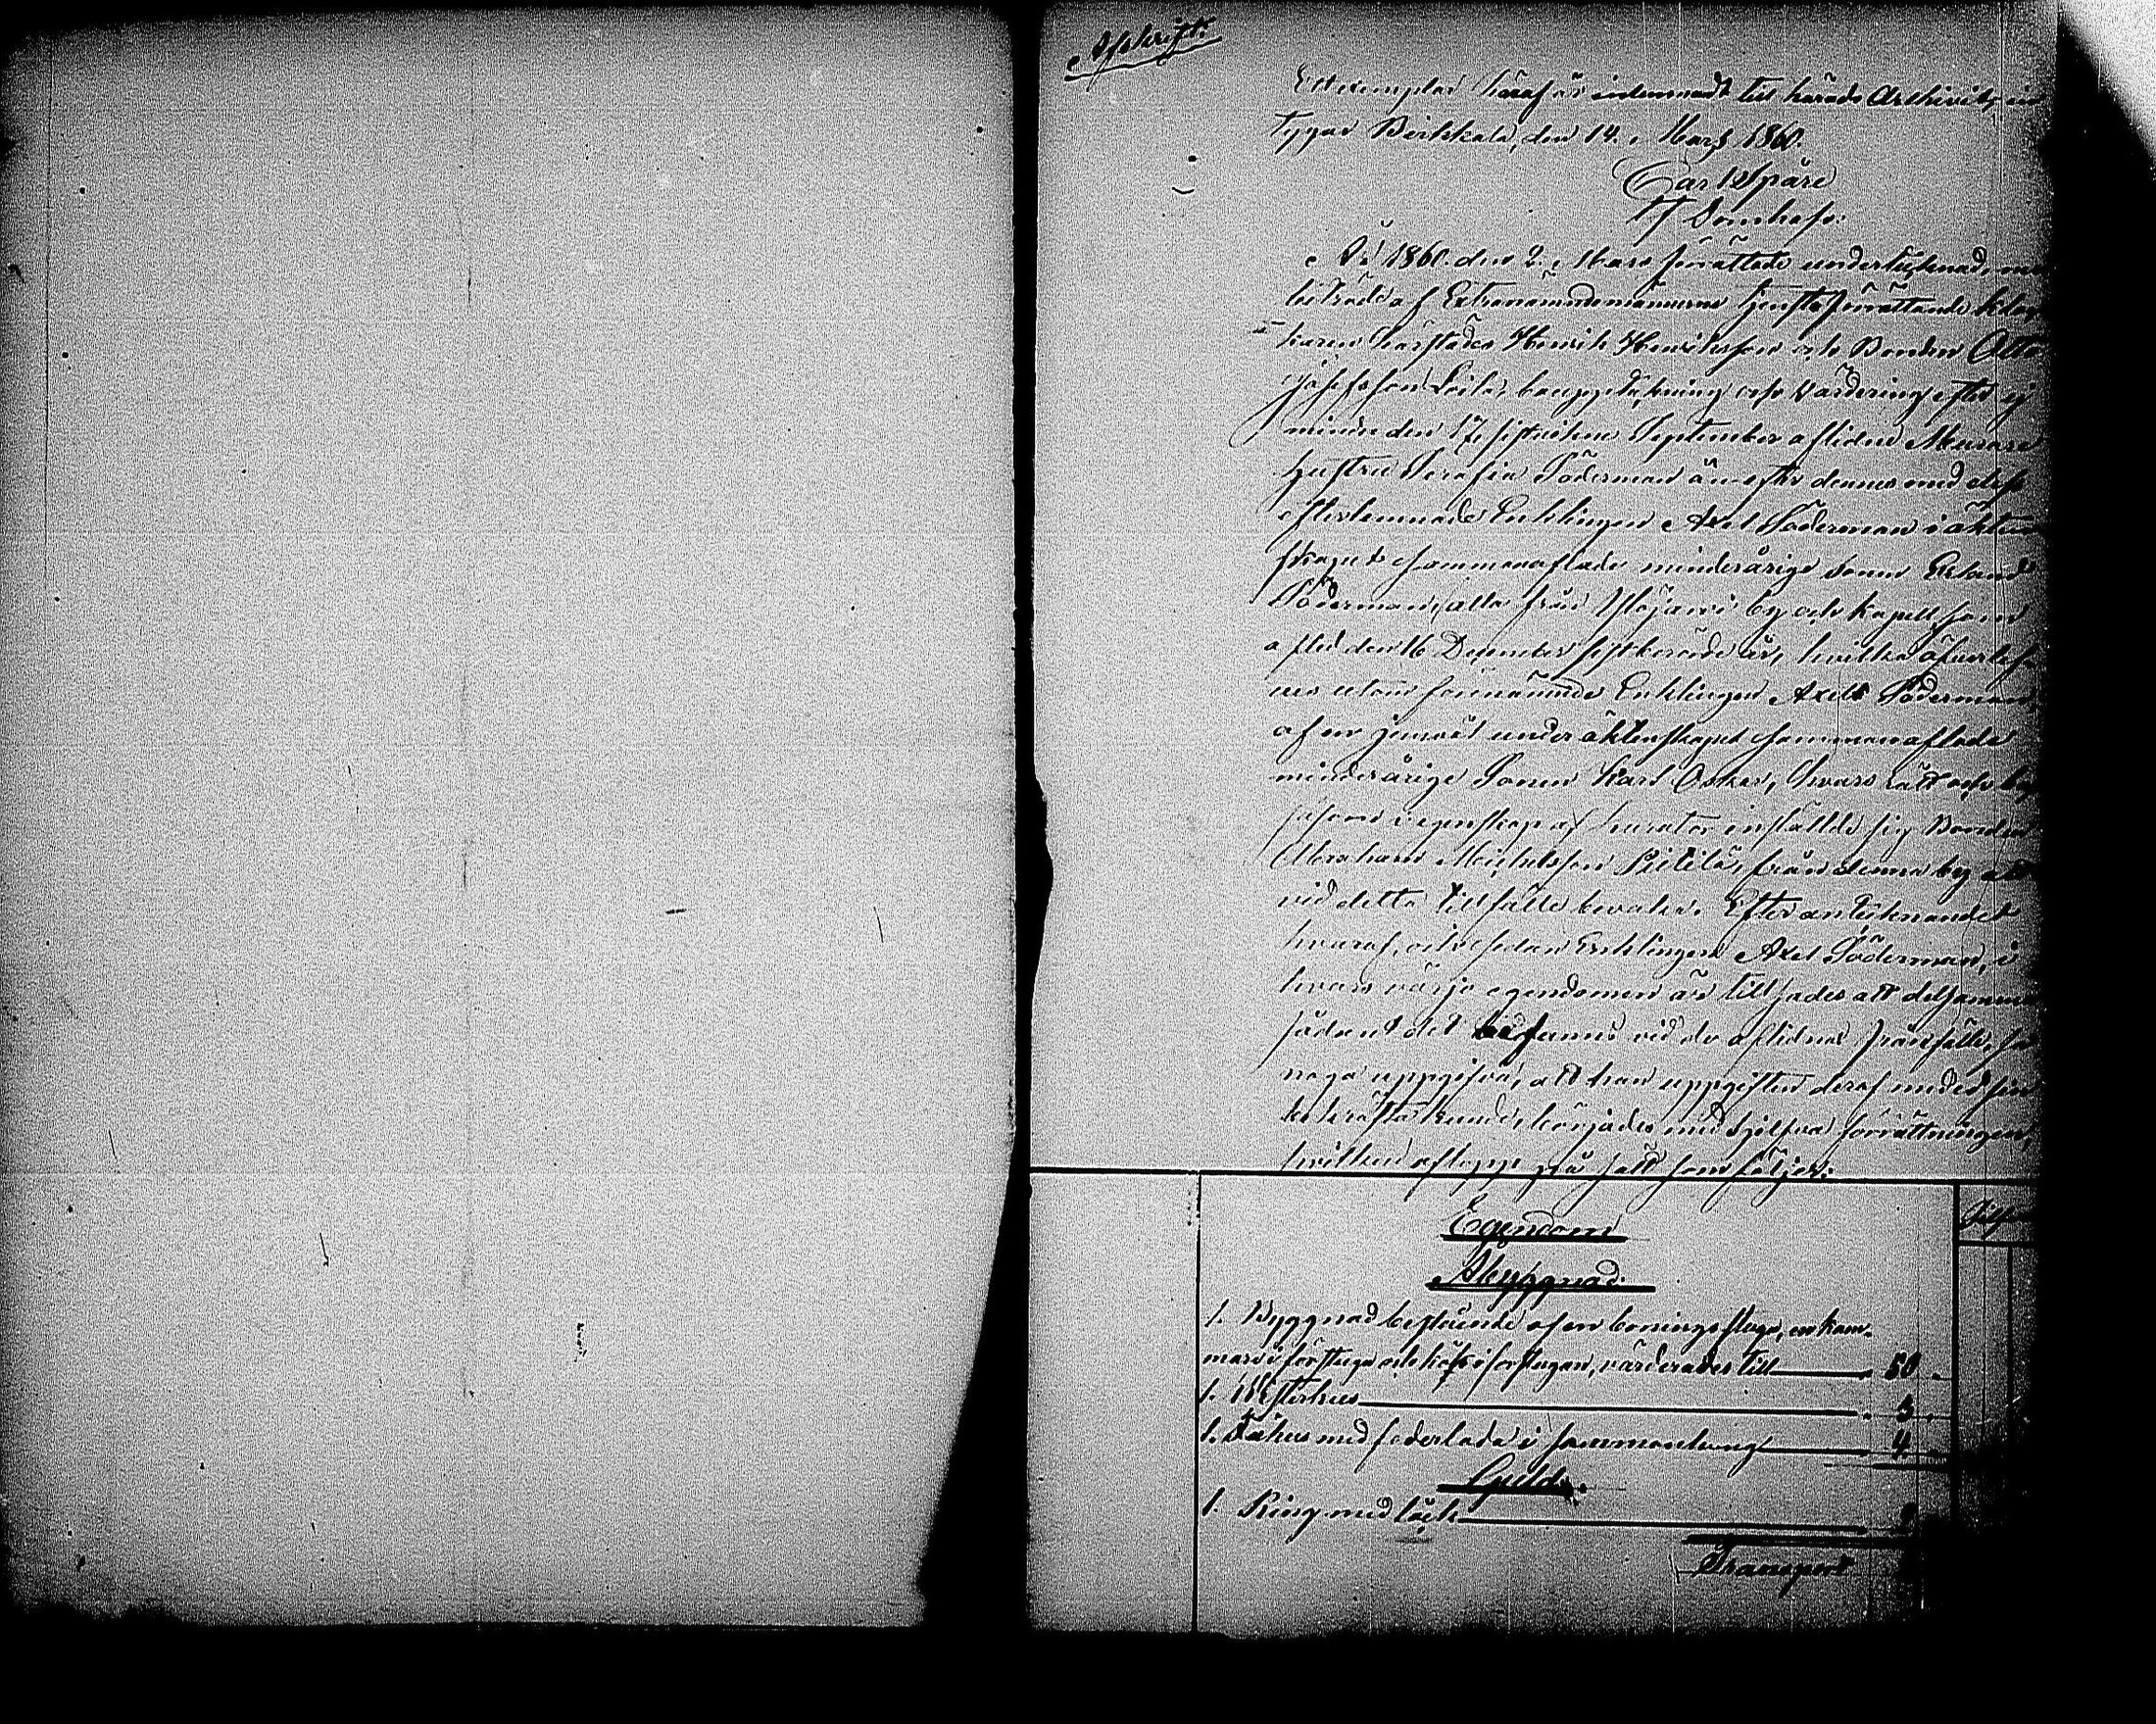 Afskrift.
Ett exemplar häraf är inlemnadt till härads Archivet, in
tygar Birkkala, den 14. Mars 1860.
Carl Spåre
Domhafv:
År 1860. den 2. Mars förrättade undertecknad, med
biträde af Extranämndemännerne Häfste förrättande kloc
karen härstädes Henrik Henriksson och Bonden Otto
Josefsson Leilo, bouppteckning och värdering efter ej
mindre den 17 sistvikne September aflidne Murare
hustru Serafia Söderman än efter dennes med dess
efterlemnade Enklingen Axel Söderman i äkten
skapet sammanaflade minderårige sonen Erland
Söderman, alla från Ylöjärvi by och kapell, som
afled den 16 December sistberörde år, hvilka öfverlef
ves utom förenämnde Enklingen Axel Söderman
af en jemväl under äktenskapet sammanaflade
minderårige Sonen Karl Oskar, hvars rätt och be
såsom i egenskap af kurator inställde sig Bonden
Abraham Michelsson Pietilä, från denna by att
vid detta tillfälle bevaka. Efter antecknandet
hvaraf, och sedan Enklingen Axel Söderman, i
hvars värjo egendomen är tillsades att detsamma
sådant det befanns vid de aflidnes frånfälle, så
noga uppgifva, att han uppgiften deraf med ed sin
bekräfta kunde, börjades med sjelfva förrättningen,
hvilken aflopp på sätt som följer:
Egendom
Åbyggnad.
1. Byggnad bestående af en boningsstuga, en kam-
mare i förstuga och kök i förstugan, värderades till 50
1. Rösterhus 3
1. Fähus med foderlada i sammanhang 4
Guld.
1. Ring med läck
Transport